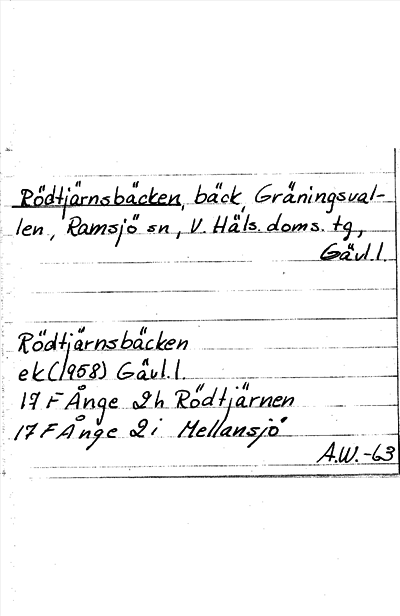 Rödtjärnsbäcken, bäck, Gräningsval-
len, Ramsjö sn, V. Häls. doms. tg,
Gävl.l.
Rödtjärnsbäcken
ek(1958) Gävl.l.
17 F Ånge 2h Rödtjärnen
17 F Ånge 2i Mellansjö
A.W.-63